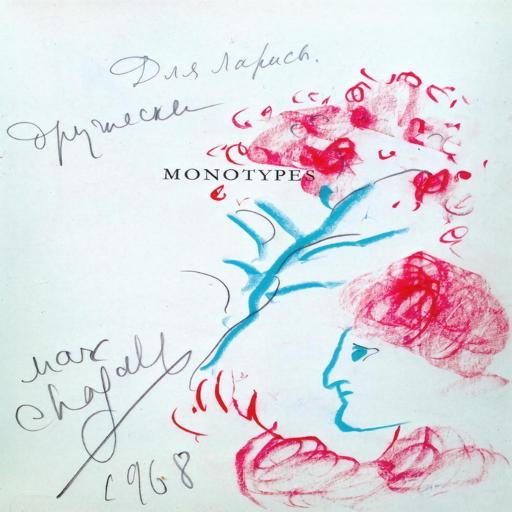 Для Ларисы.
дружески
MONOTYPES
Marc
Chagall
1968